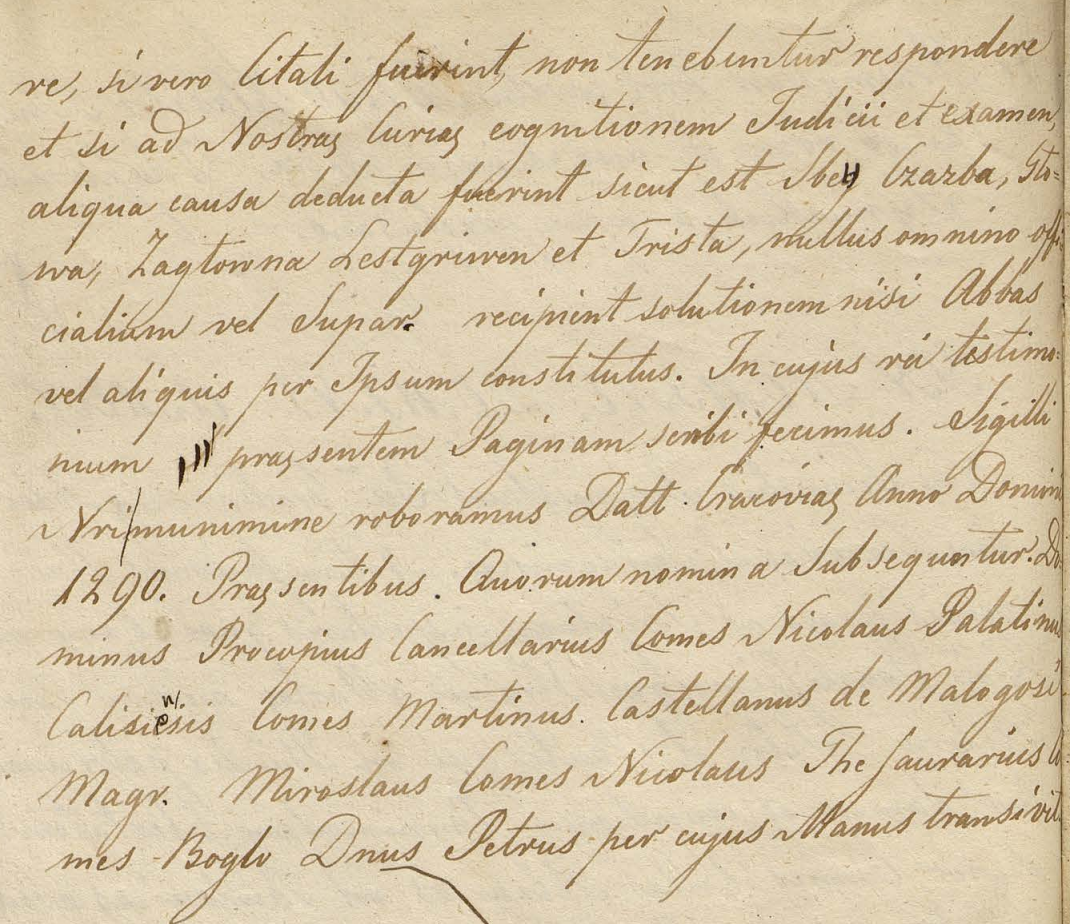 re, si vero Citati fuerint, non tenebuntur respondere
et si ad Nostræ Curiæ cognitionem Judicii et examen,
aliqua causa deducta fuerint sicut est Czazba, Sto=
wa, Zagtowna Lestgriwen et Trista, nullus omnino offi=
cialium vel Supar. recipient solutionem nisi Abbas
vel aliquis per Ipsum constitutus. In cujus rei testimo=
nium præsentem Paginam scribi fecimus. Sigilli
Nri munimine roboramus Datt. Cracoviæ Anno Domini
1290. Præsentibus. Quorum nomina Subsequntur. Do=
minus Procopius Cancellarius Comes Nicolaus Palatinus
Calisiensis Comes Martinus. Castellanus de Malogosi
Magr. Miroslaus Comes Nicolaus Thesaurarius Co=
mes Boglo Dnus Petrus per cujus Manus transivit